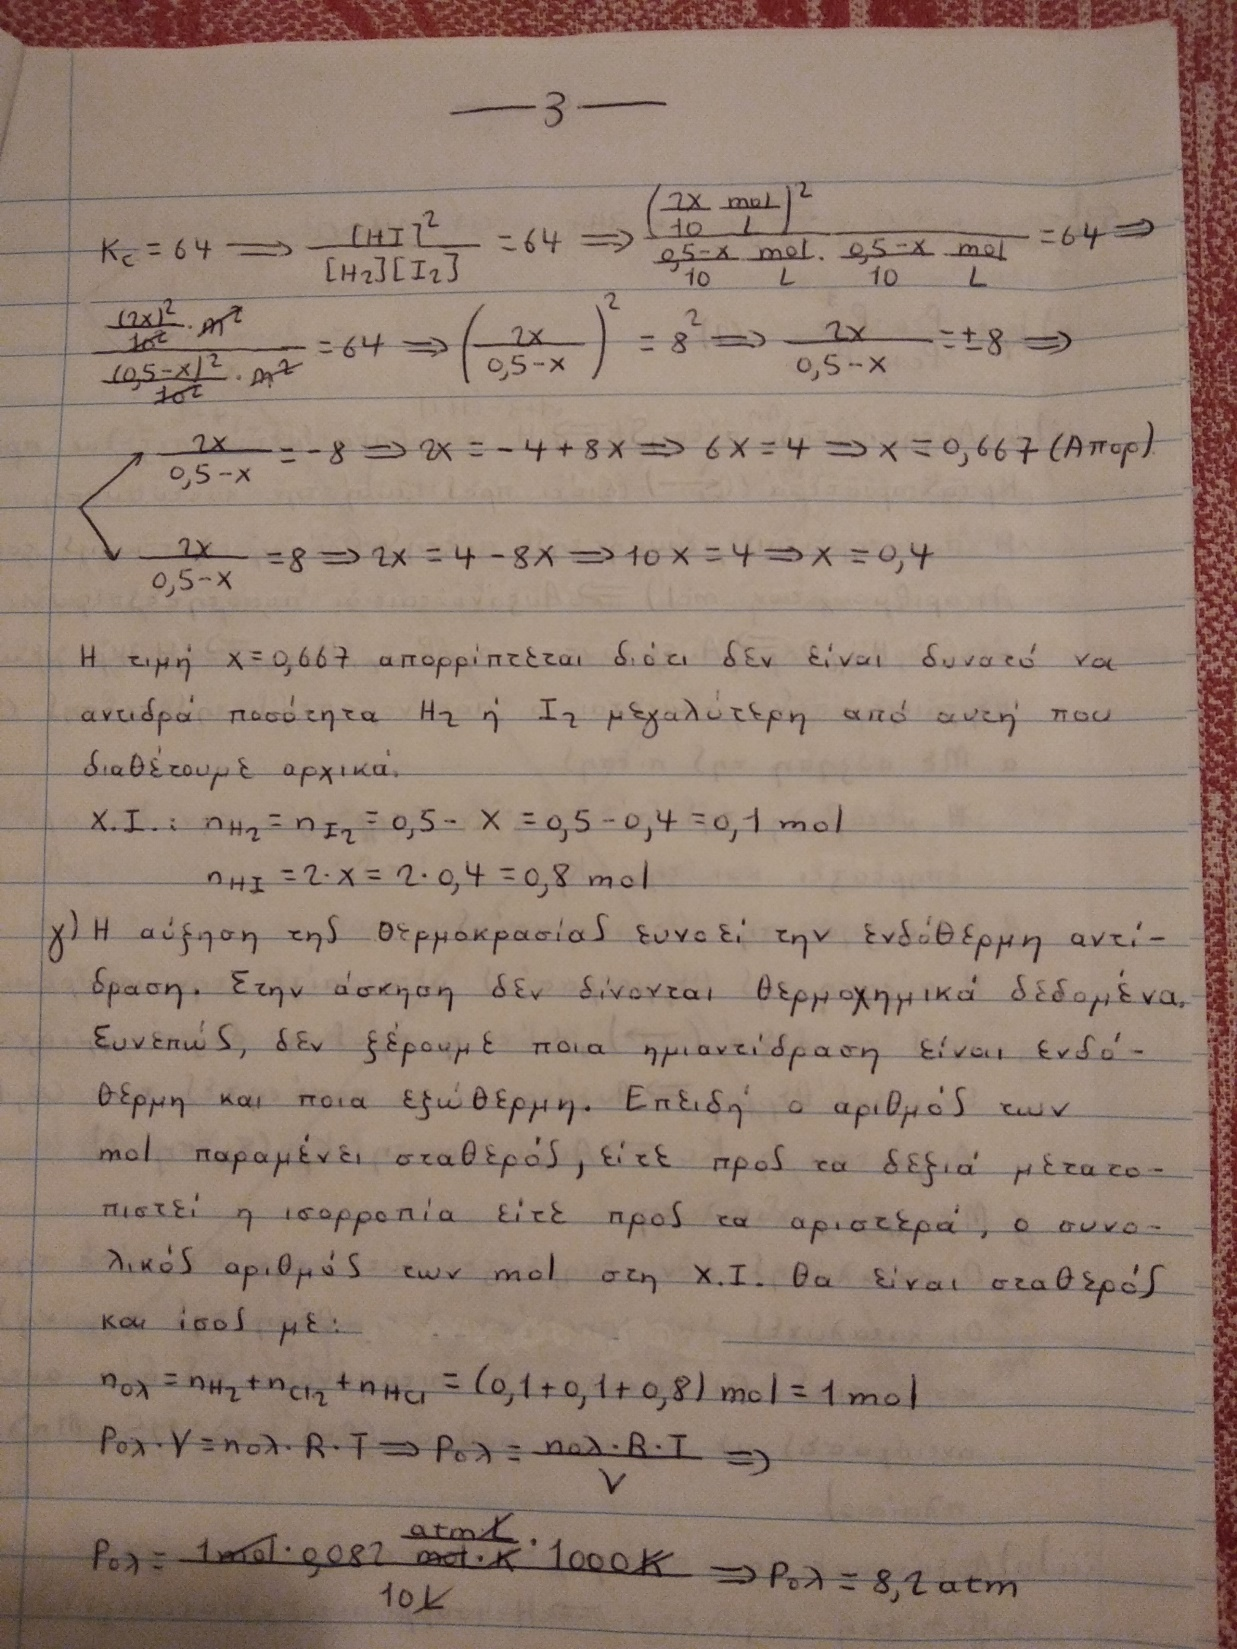 — 3 —
Kc = 64 ⟹ [HI]² / [H₂][I₂] = 64 ⟹ (2x/10 mol/L)² / (0,5-x/10 mol/L · 0,5-x/10 mol/L) = 64 ⟹
((2x)²/10² · M²) / ((0,5-x)²/10² · M²) = 64 ⟹ (2x / 0,5-x)² = 8² ⟹ 2x / 0,5-x = ±8 ⟹
2x / 0,5-x = -8 ⟹ 2x = -4+8x ⟹ 6x = 4 ⟹ x = 0,667 (Απορ).
2x / 0,5-x = 8 ⟹ 2x = 4 - 8x ⟹ 10x = 4 ⟹ x = 0,4
Η τιμή x=0,667 απορρίπτεται διότι δεν είναι δυνατό να
αντιδρά ποσότητα H₂ ή I₂ μεγαλύτερη από αυτή που
διαθέτουμε αρχικά.
Χ.Ι.: nH₂ = nI₂ = 0,5 - x = 0,5 - 0,4 = 0,1 mol
nHI = 2·x = 2·0,4 = 0,8 mol
γ) Η αύξηση της θερμοκρασίας ευνοεί την ενδόθερμη αντί-
δραση. Στην άσκηση δεν δίνονται θερμοχημικά δεδομένα.
Συνεπώς, δεν ξέρουμε ποια ημιαντίδραση είναι ενδό-
θερμη και ποια εξώθερμη. Επειδή ο αριθμός των
mol παραμένει σταθερός, είτε προς τα δεξιά μετατο-
πιστεί η ισορροπία είτε προς τα αριστερά, ο συνο-
λικός αριθμός των mol στη Χ.Ι. θα είναι σταθερός
και ίσος με:
nολ = nH₂ + nCl₂ + nHCl = (0,1+0,1+0,8) mol = 1 mol
Pολ·V = nολ·R·T ⟹ Pολ = nολ·R·T / V ⟹
Pολ = 1 mol · 0,082 atm L / mol·K · 1000 K / 10 L ⟹ Pολ = 8,2 atm